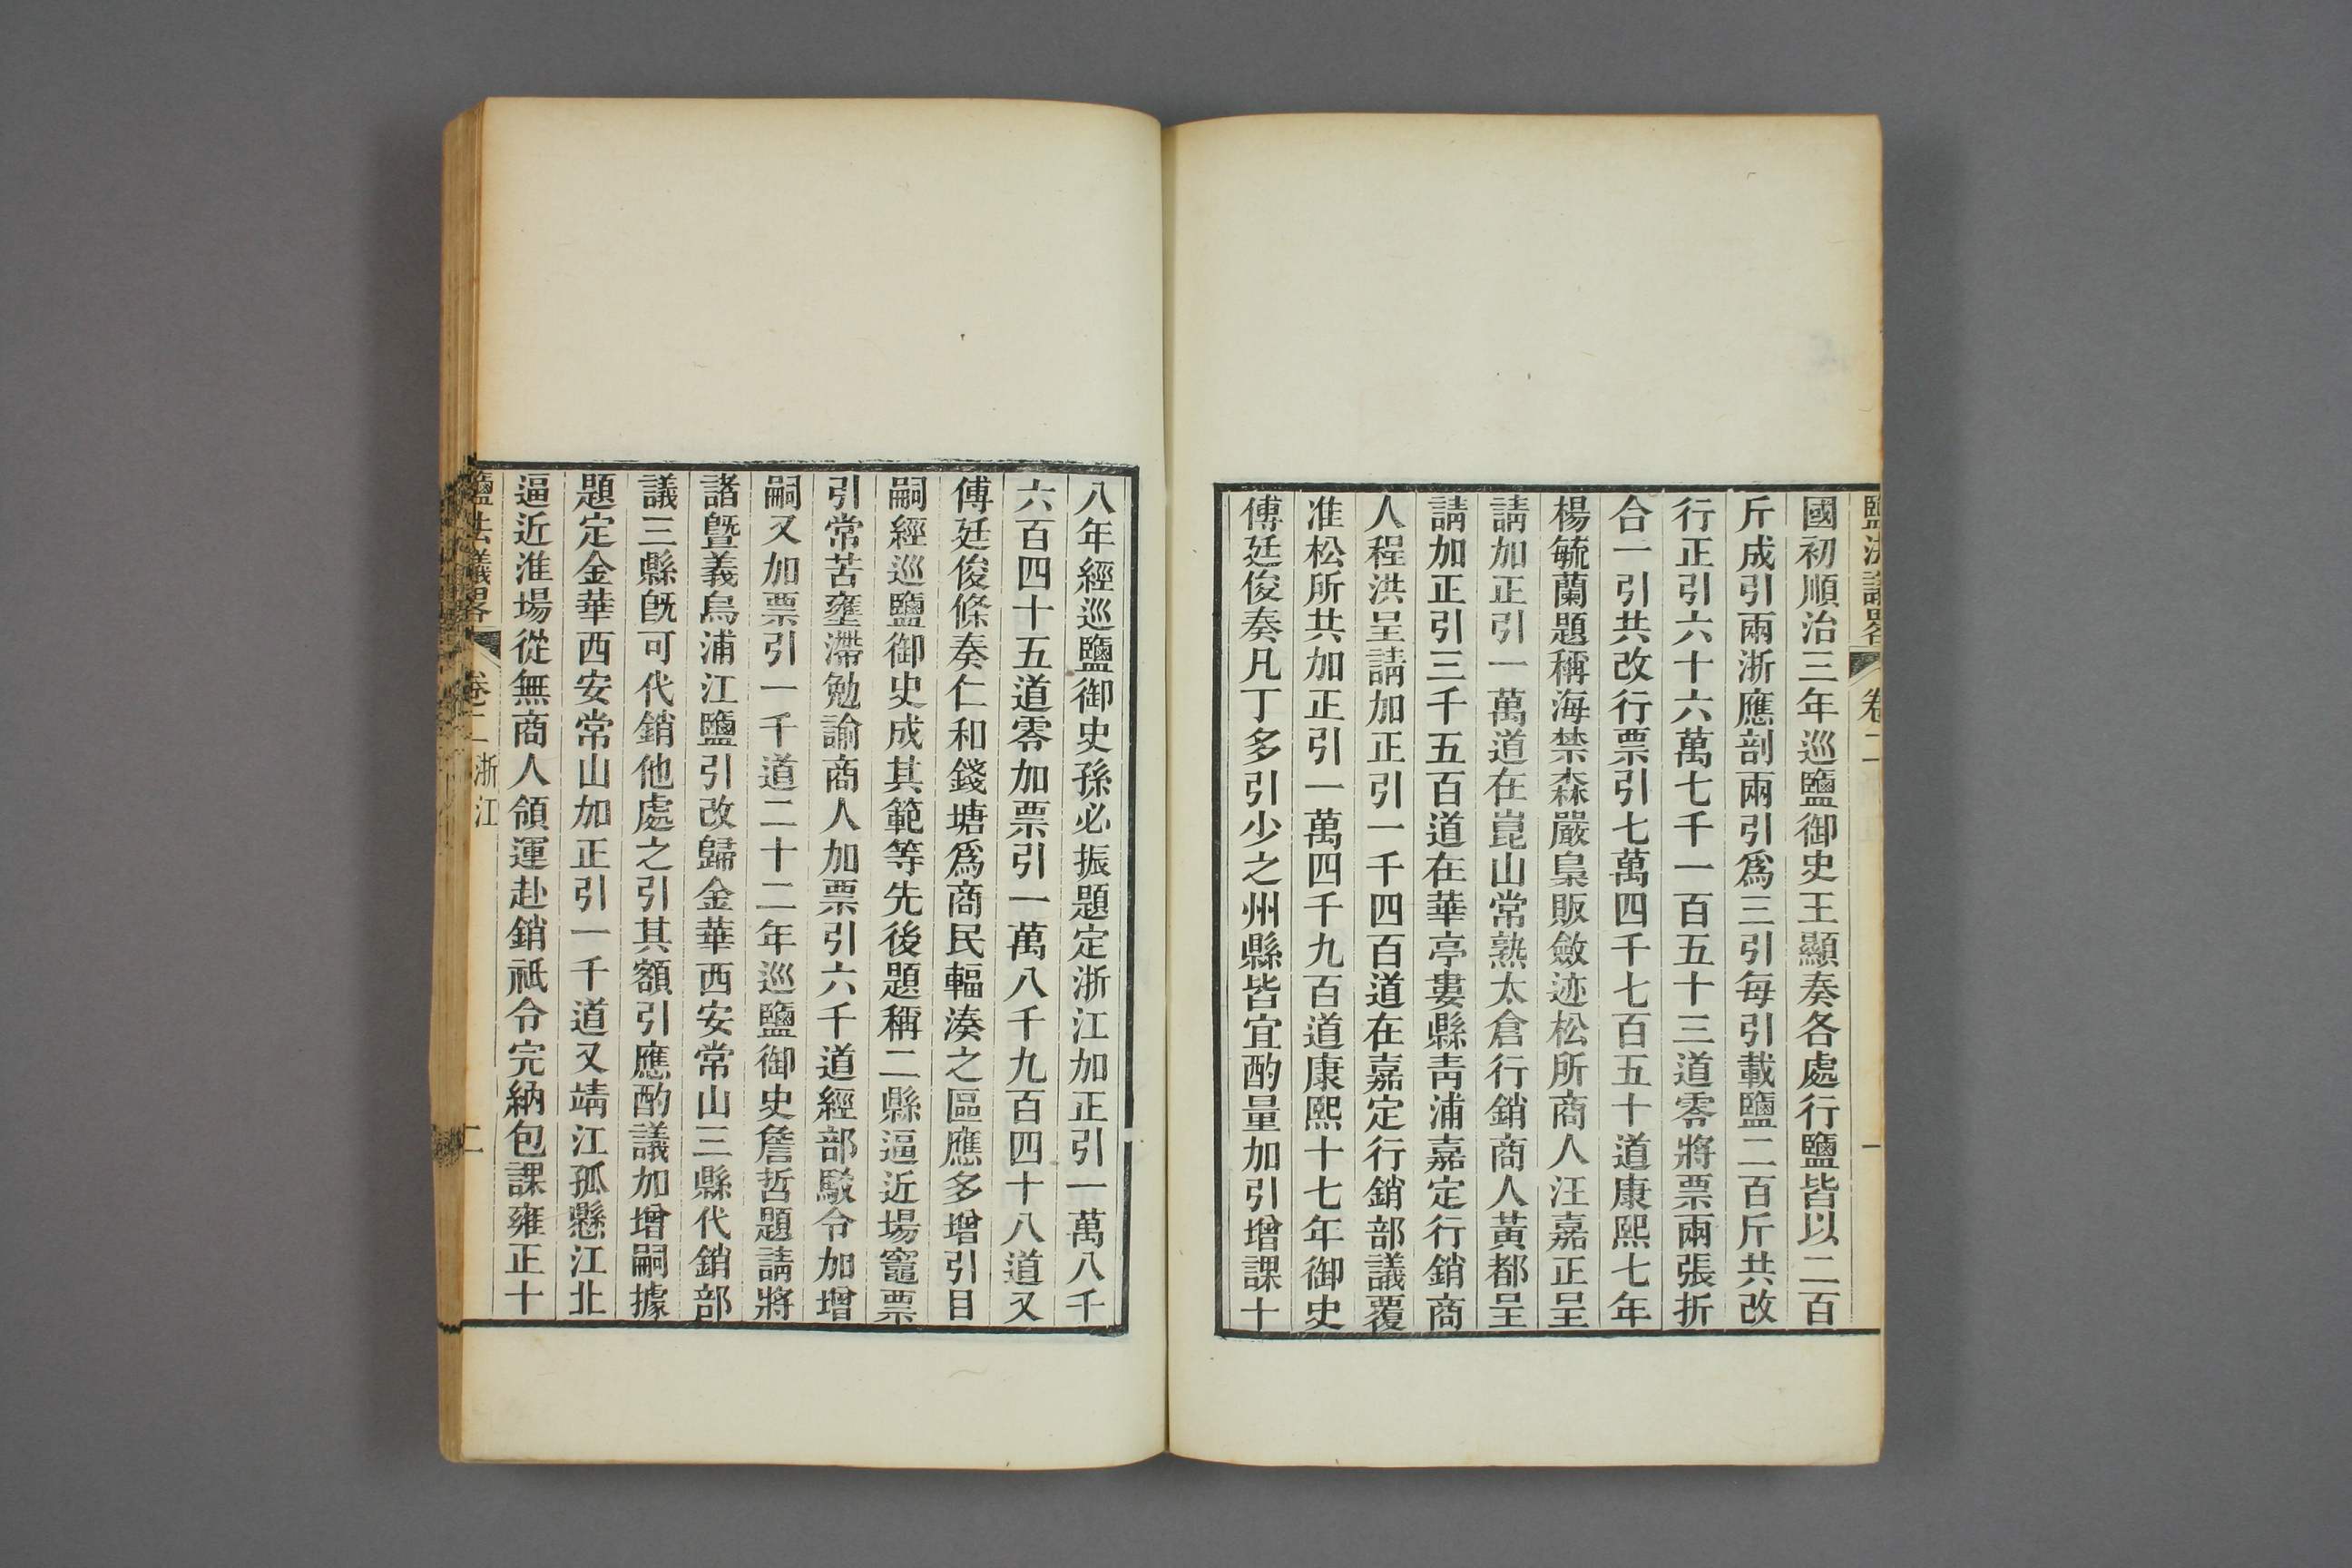 鹽法議略 卷二 一
國初順治三年巡鹽御史王顯奏各處行鹽皆以二百
斤成引兩浙應剖兩引爲三引每引載鹽二百斤共改
行正引六十六萬七千一百五十三道零將票兩張折
合一引共改行票引七萬四千七百五十道康熙七年
楊毓蘭題稱海禁森嚴梟販斂迹松所商人汪嘉正呈
請加正引一萬道在崑山常熟太倉行銷商人黃都呈
請加正引三千五百道在華亭婁縣靑浦嘉定行銷商
人程洪呈請加正引一千四百道在嘉定行銷部議覆
准松所共加正引一萬四千九百道康熙十七年御史
傅廷俊奏凡丁多引少之州縣皆宜酌量加引增課十
八年經巡鹽御史孫必振題定浙江加正引一萬八千
六百四十五道零加票引一萬八千九百四十八道又
傅廷俊條奏仁和錢塘爲商民輻湊之區應多增引目
嗣經巡鹽御史成其範等先後題稱二縣逼近場竈票
引常苦壅滯勉諭商人加票引六千道經部駁令加增
嗣又加票引一千道二十二年巡鹽御史詹哲題請將
諸曁義烏浦江鹽引改歸金華西安常山三縣代銷部
議三縣旣可代銷他處之引其額引應酌議加增嗣據
題定金華西安常山加正引一千道又靖江孤懸江北
逼近淮場從無商人領運赴銷祇令完納包課雍正十
鹽法議略 卷二 浙江 二